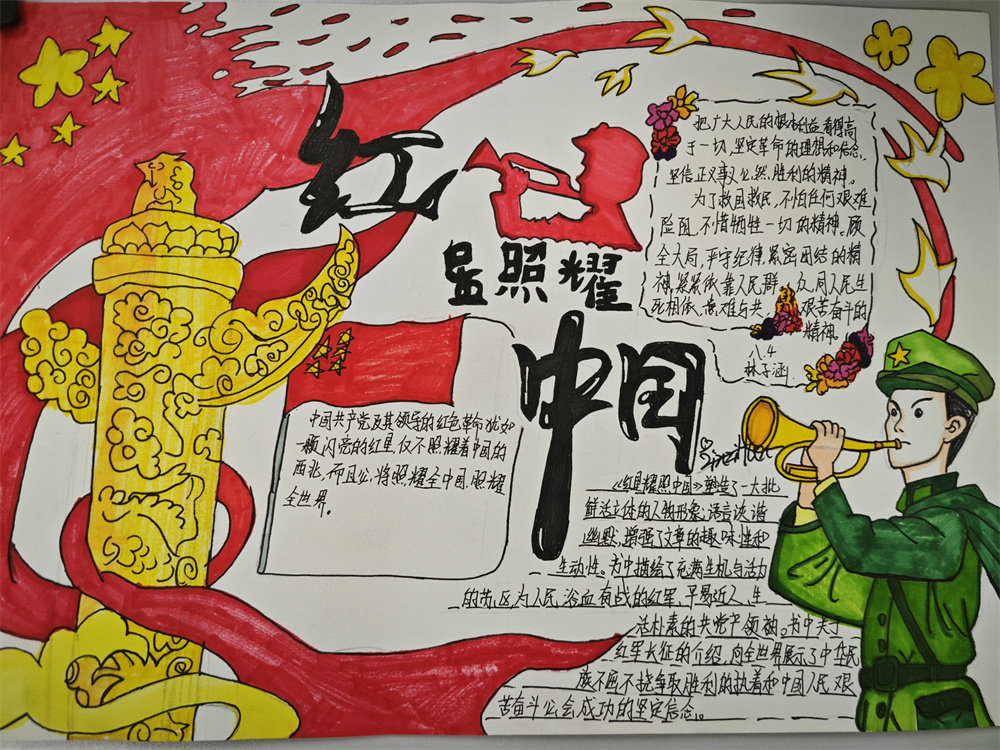 红
星照耀
中国
把广大人民的根本利益看得高
于一切,坚定革命的理想和信念,
坚信正义事义必然胜利的精神。
为了救国救民,不怕任何艰难
险阻,不惜牺牲一切的精神。顾
全大局,严守纪律,紧密团结的精
神,紧紧依靠人民群众,同人民生
死相依、患难与共、艰苦奋斗的
精神。
八.4
林子涵
中国共产党及其领导的红色革命犹如
一颗闪亮的红星,仅不照耀着中国的
西北,而且必将照耀全中国,照耀
全世界。
《红星耀照中国》塑造了一大批
鲜活立体的人物形象;语言诙谐
幽默,增强了文章的趣味性和
生动性。书中描绘了充满生机与活力
的苏区为人民浴血奋战的红军,平易近人、生
活朴素的共党产领袖。书中关于
红军长征的介绍,向全世界展示了中华民
族不画不挠争取胜利的执着和中国人民艰
苦奋斗必会成功的坚定信念。